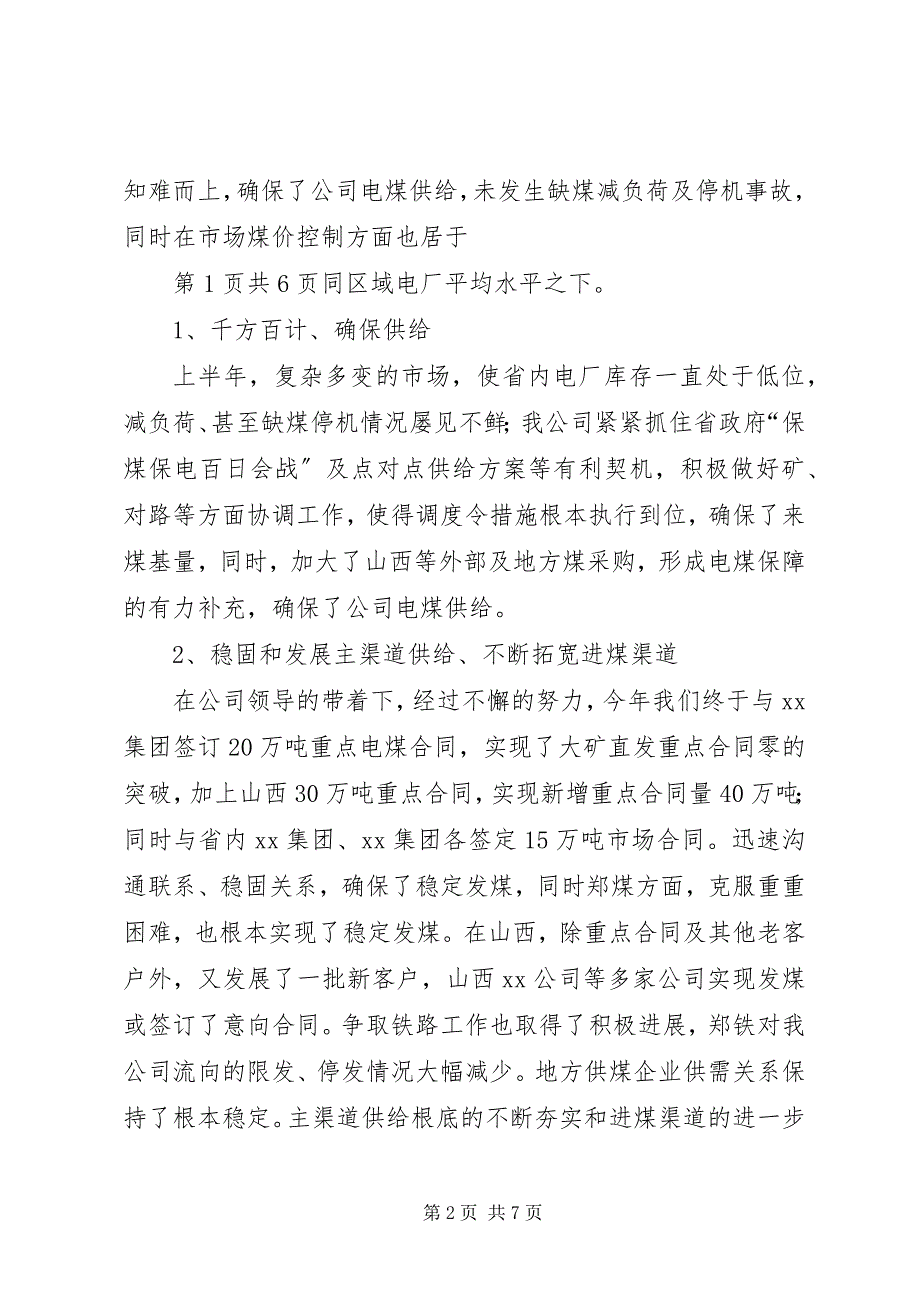 知难而上，确保了公司电煤供给，未发生缺煤减负荷及停机事故，
同时在市场煤价控制方面也居于
第 1 页共 6 页同区域电厂平均水平之下。
1、千方百计、确保供给
上半年，复杂多变的市场，使省内电厂库存一直处于低位，
减负荷、甚至缺煤停机情况屡见不鲜；我公司紧紧抓住省政府“保
煤保电百日会战〞及点对点供给方案等有利契机，积极做好矿、
对路等方面协调工作，使得调度令措施根本执行到位，确保了来
煤基量，同时，加大了山西等外部及地方煤采购，形成电煤保障
的有力补充，确保了公司电煤供给。
2、稳固和发展主渠道供给、不断拓宽进煤渠道
在公司领导的带着下，经过不懈的努力，今年我们终于与 xx
集团签订 20 万吨重点电煤合同，实现了大矿直发重点合同零的
突破，加上山西 30 万吨重点合同，实现新增重点合同量 40 万吨；
同时与省内 xx 集团、xx 集团各签定 15 万吨市场合同。迅速沟
通联系、稳固关系，确保了稳定发煤，同时郑煤方面，克服重重
困难，也根本实现了稳定发煤。在山西，除重点合同及其他老客
户外，又发展了一批新客户，山西 xx 公司等多家公司实现发煤
或签订了意向合同。争取铁路工作也取得了积极进展，郑铁对我
公司流向的限发、停发情况大幅减少。地方供煤企业供需关系保
持了根本稳定。主渠道供给根底的不断夯实和进煤渠道的进一步
第 2 页 共 7 页